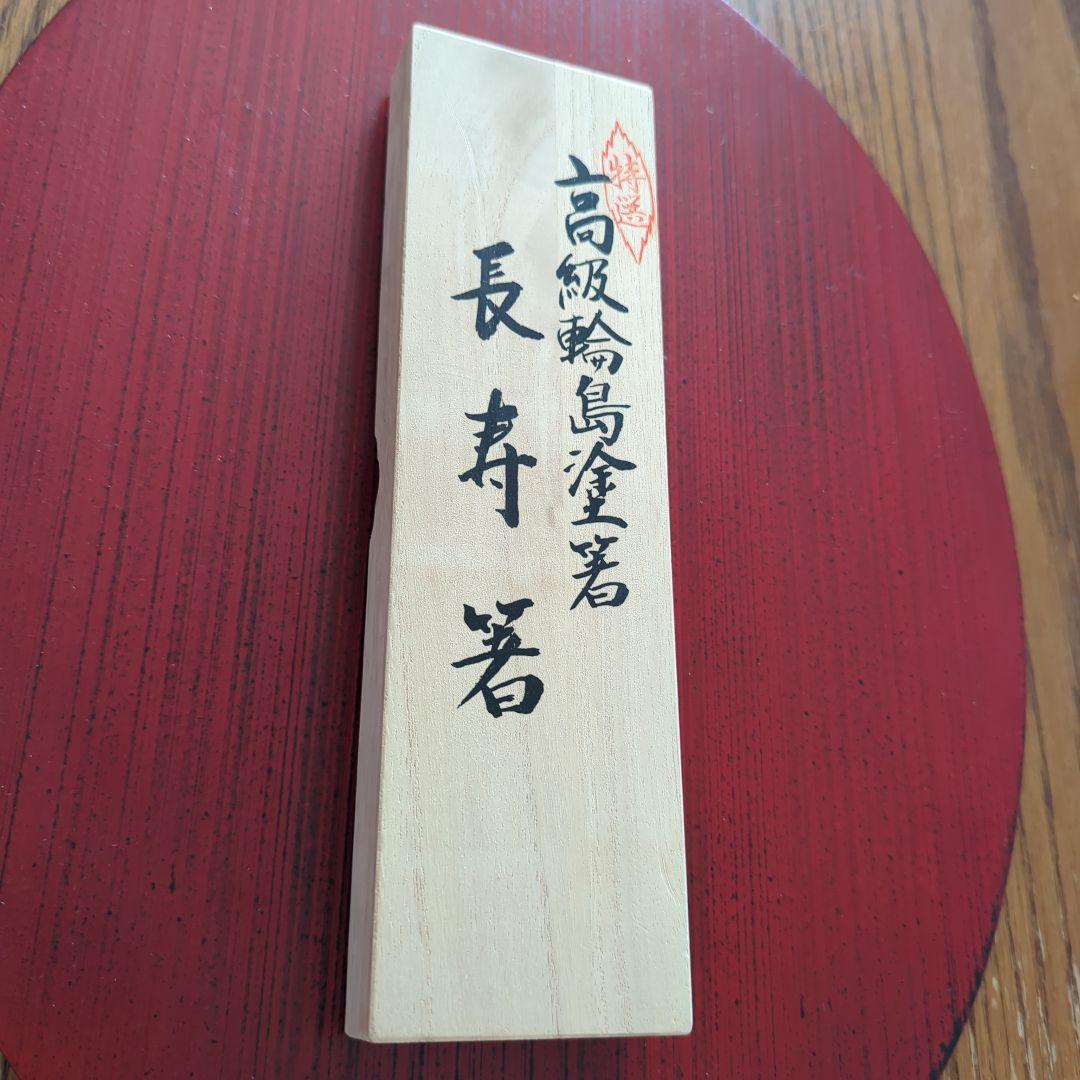 特選
高級輪島塗箸
長寿箸